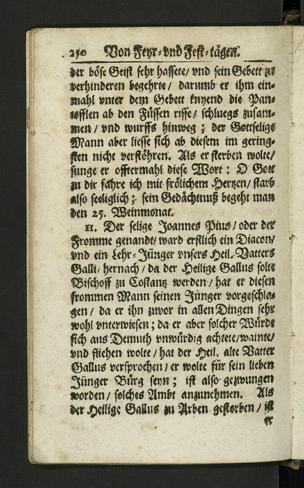 250 Von Feyr- vnd Fest-tägen.
der böse Geist sehr hassete/ vnd sein Gebett zu
verhinderen begehrte / darumb er ihm ein-
mahl vnter dem Gebett knyend die Pan-
tofflen ab den Füssen risse / schluegs zusam-
men / vnd wurffs hinweg ; der Gottselige
Mann aber liesse sich ab diesem im gering-
sten nicht verstöhren. Als er sterben wolte/
sunge er offtermahl diese Wort: O Gott
zu dir fahre ich mit frölichem Hertzen / starb
also seeliglich ; sein Gedächtnuß begeht man
den 25. Weinmonat.
11. Der selige Joannes Pius / oder der
Fromme genandt / ward erstlich ein Diacon/
vnd ein Lehr-Jünger vnsers Heil. Vatters
Galli / hernach / da der Heilige Gallus solte
Bischoff zu Costantz werden / hat er diesen
frommen Mann seinen Jünger vorgeschla-
gen / da er ihn zuvor in allen Dingen sehr
wohl vnterwiesen ; da er aber solcher Würde
sich aus Demuth vnwürdig achtete / wainte/
vnd fliehen wolte / hat der Heil. alte Vatter
Gallus versprochen / er wolte für sein lieben
Jünger Bürg seyn ; ist also gezwungen
worden / solches Ambt anzunehmen. Als
der Heilige Gallus zu Arben gestorben / ist
er